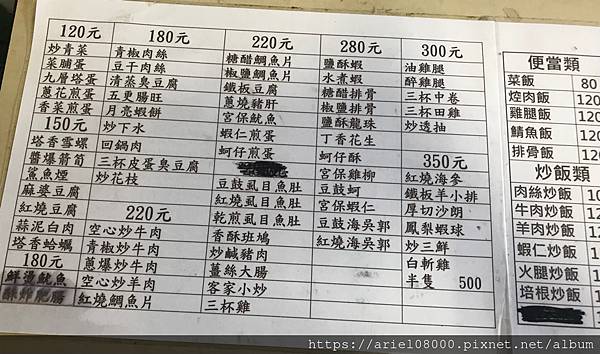 120元
炒青菜
菜脯蛋
九層塔蛋
蔥花煎蛋
香菜煎蛋
150元
塔香雪螺
醬爆箭筍
鯊魚煙
麻婆豆腐
紅燒豆腐
蒜泥白肉
塔香蛤蠣
180元
鮮燙魷魚
180元
青椒肉絲
豆干肉絲
清蒸臭豆腐
五更腸旺
月亮蝦餅
炒下水
回鍋肉
三杯皮蛋臭豆腐
炒花枝
220元
空心炒牛肉
青椒炒牛肉
蔥爆炒牛肉
空心炒羊肉
紅燒鯛魚片
220元
糖醋鯛魚片
椒鹽鯛魚片
鐵板豆腐
蔥燒豬肝
宮保魷魚
蝦仁煎蛋
蚵仔煎蛋
豆鼓虱目魚肚
紅燒虱目魚肚
乾煎虱目魚肚
香酥班鳩
炒鹹豬肉
薑絲大腸
客家小炒
三杯雞
280元
鹽酥蝦
水煮蝦
糖醋排骨
椒鹽排骨
鹽酥龍珠
丁香花生
蚵仔酥
宮保雞柳
豆鼓蚵
宮保蝦仁
豆鼓海吳郭
紅燒海吳郭
300元
油雞腿
醉雞腿
三杯中卷
三杯田雞
炒透抽
350元
紅燒海參
鐵板羊小排
厚切沙朗
鳳梨蝦球
炒三鮮
白斬雞
半隻 500
便當類
菜飯 80
焢肉飯 120
雞腿飯 120
鯖魚飯 120
排骨飯 120
炒飯類
肉絲炒飯
牛肉炒飯
羊肉炒飯
蝦仁炒飯
火腿炒飯
培根炒飯
https://ariel08000.pixnet.net/album